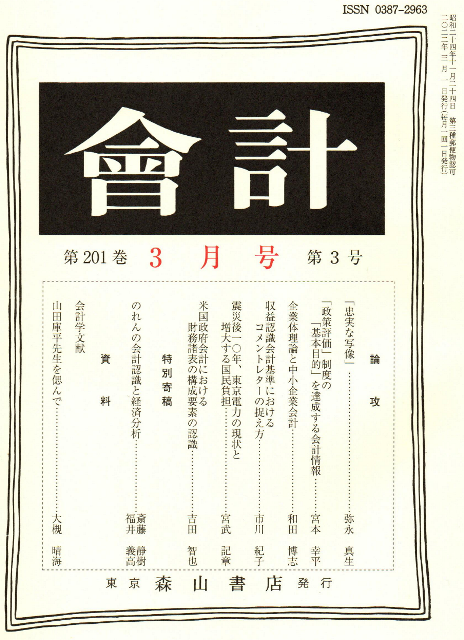 ISSN 0387-2963
昭和二十四年十一月二十四日 第三種郵便物認可
二〇二二年三月一日発行(毎月一回一日発行)
會計
第201巻 3月号 第3号
論攻
「忠実な写像」……弥永 真生
「政策評価」制度の
「基本目的」を達成する会計情報……宮本 幸平
企業体理論と中小企業会計……和田 博志
収益認識会計基準における
コメントレターの捉え方……市川 紀子
震災後一〇年、東京電力の現状と
増大する国民負担……宮武 記章
米国政府会計における
財務諸表の構成要素の認識……吉田 智也
特別寄稿
のれんの会計認識と経済分析……斎藤 静樹
福井 義高
資料
会計学文献
山田庫平先生を偲んで……大槻 晴海
東京 森山書店 発行